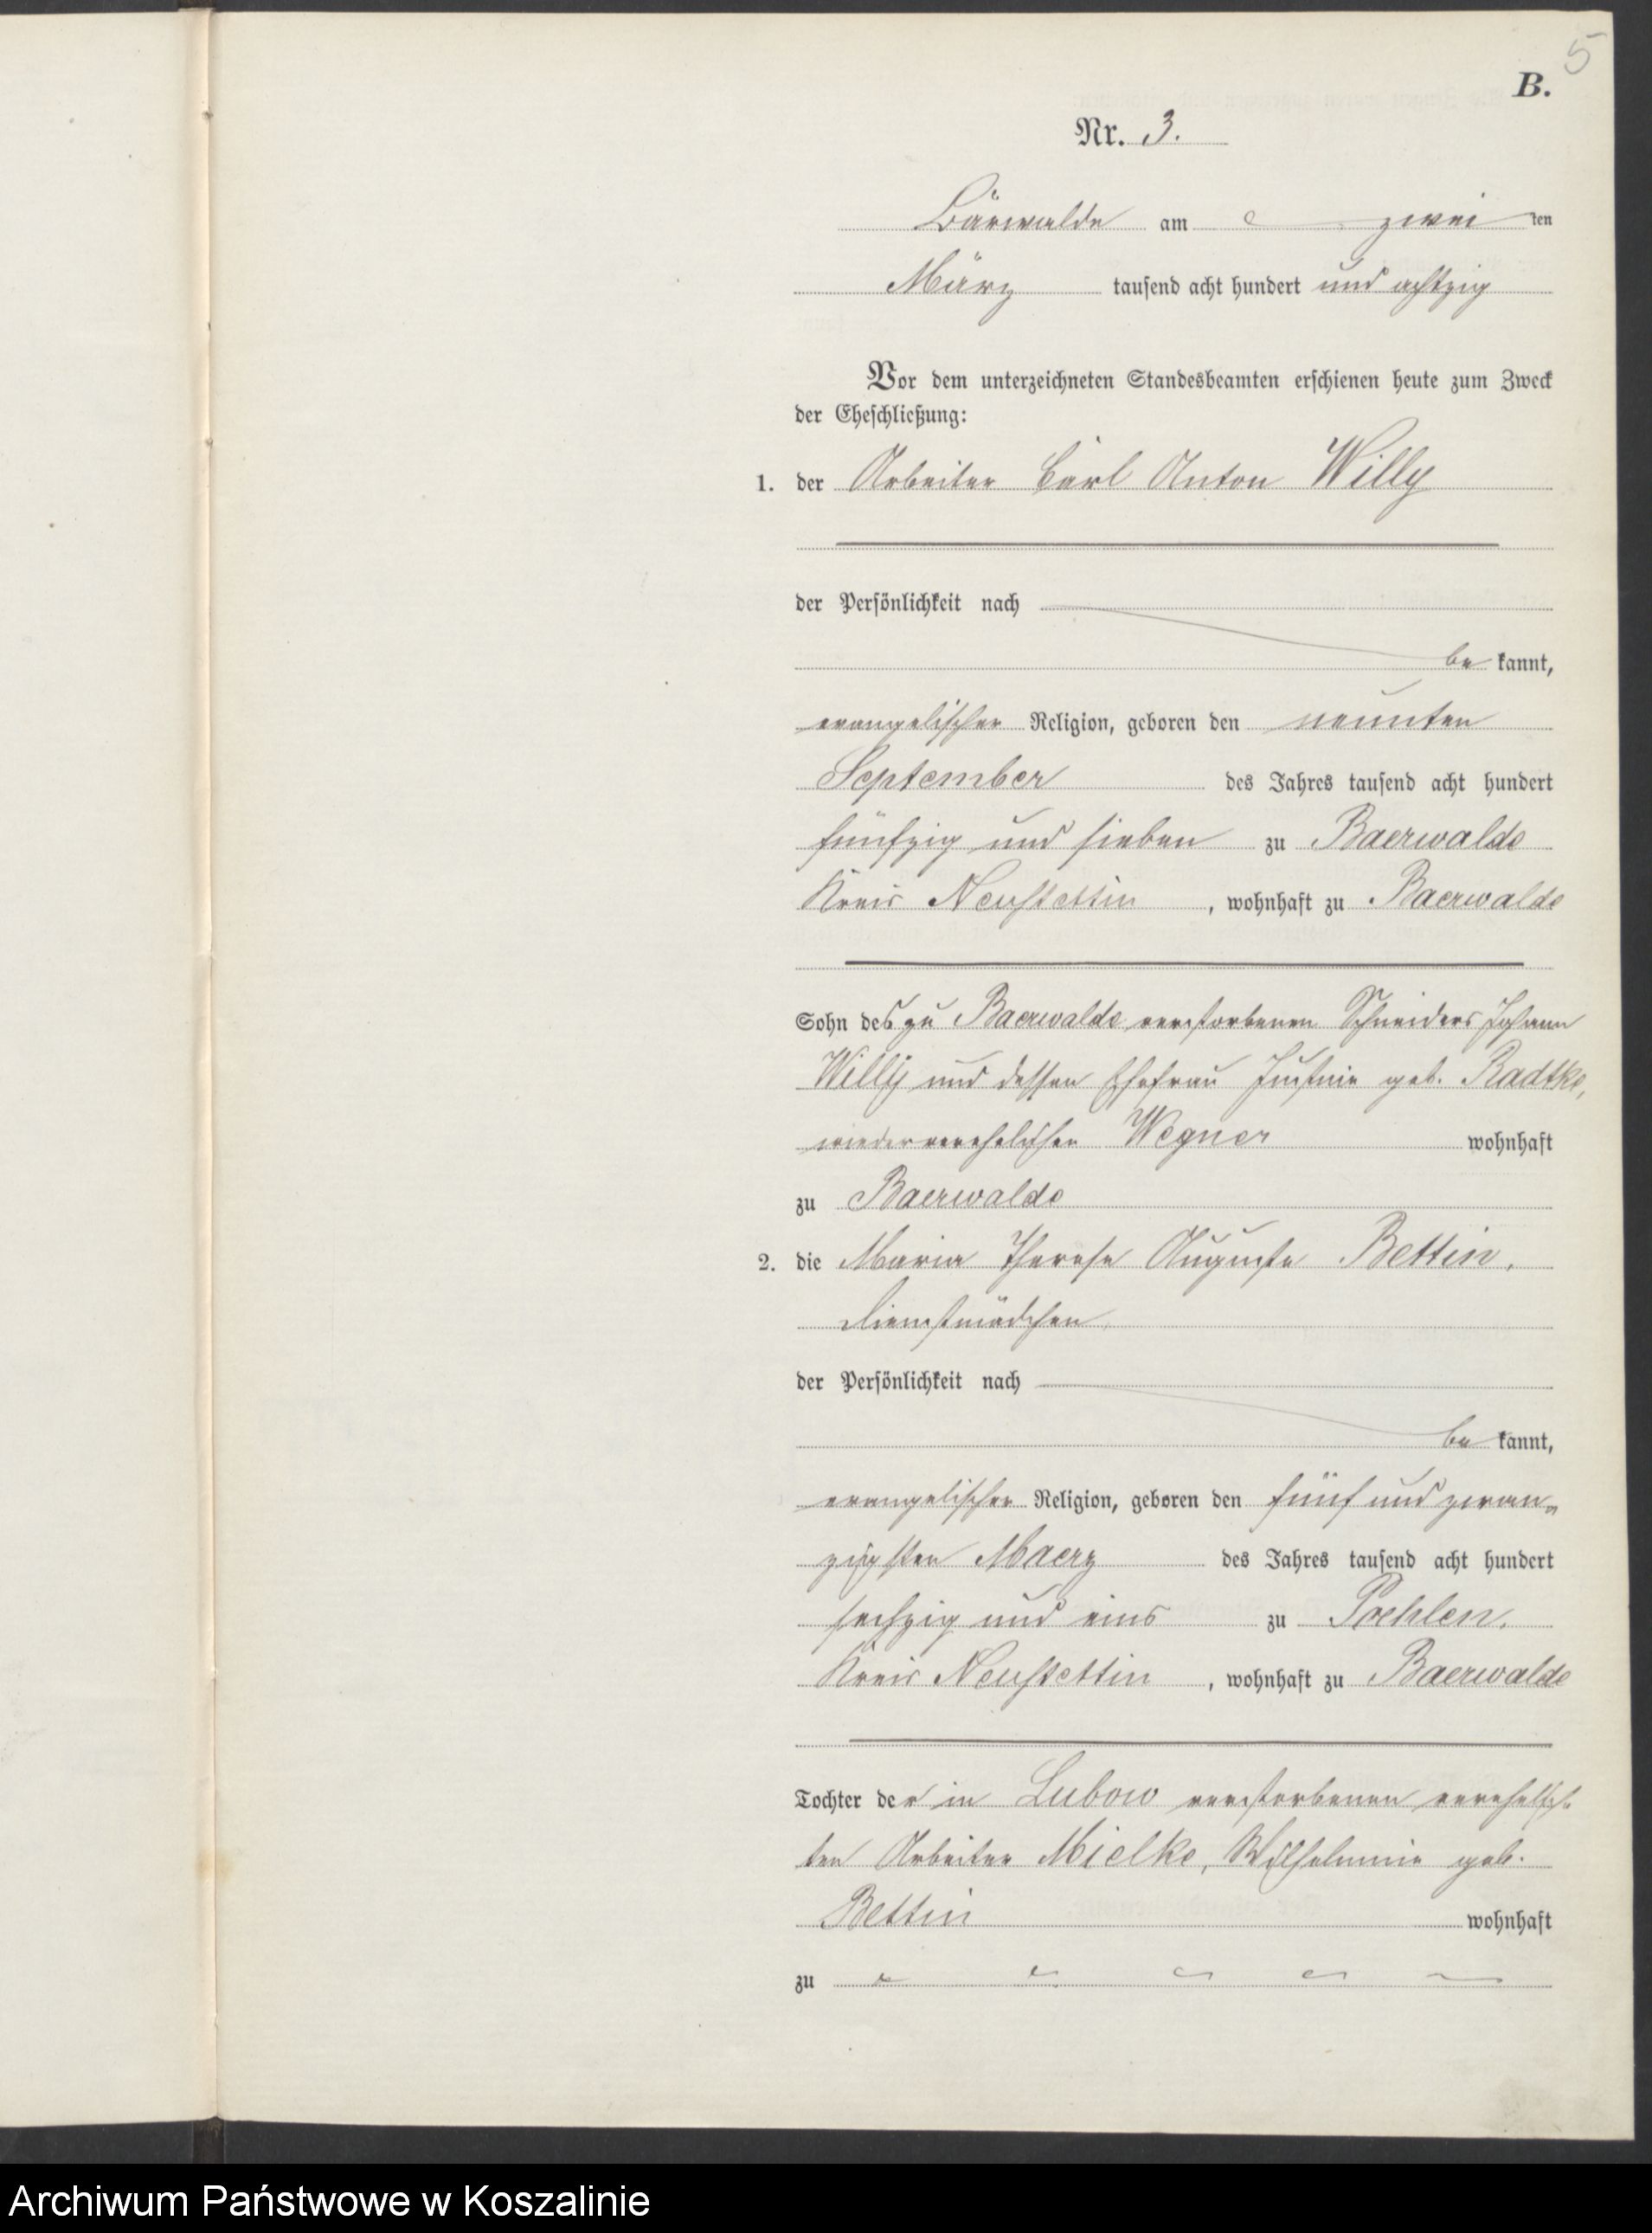 5
B.
Nr. 3.
Bärwalde am zwei ten
März tausend acht hundert und achtzig
Vor dem unterzeichneten Standesbeamten erschienen heute zum Zweck
der Eheschließung:
1. der Arbeiter Carl Anton Willy
der Persönlichkeit nach
be kannt,
evangelischer Religion, geboren den neunten
September des Jahres tausend acht hundert
fünfzig und sieben zu Baerwalde
Kreis Neustettin, wohnhaft zu Baerwalde
Sohn des zu Baerwalde verstorbenen Schneiders Johann
Willy und dessen Ehefrau Justine geb. Radtke,
wiederverehelichten Wegner wohnhaft
zu Baerwalde
2. die Maria Therese Auguste Bettin,
Dienstmädchen,
der Persönlichkeit nach
be kannt,
evangelischer Religion, geboren den fünf und zwan-
zigsten Maerz des Jahres tausend acht hundert
sechzig und eins zu Poehlen,
Kreis Neustettin, wohnhaft zu Baerwalde
Tochter der in Lubow verstorbenen verehelich-
ten Arbeiter Mielke, Wilhelmine geb.
Bettin wohnhaft
zu
Archiwum Państwowe w Koszalinie